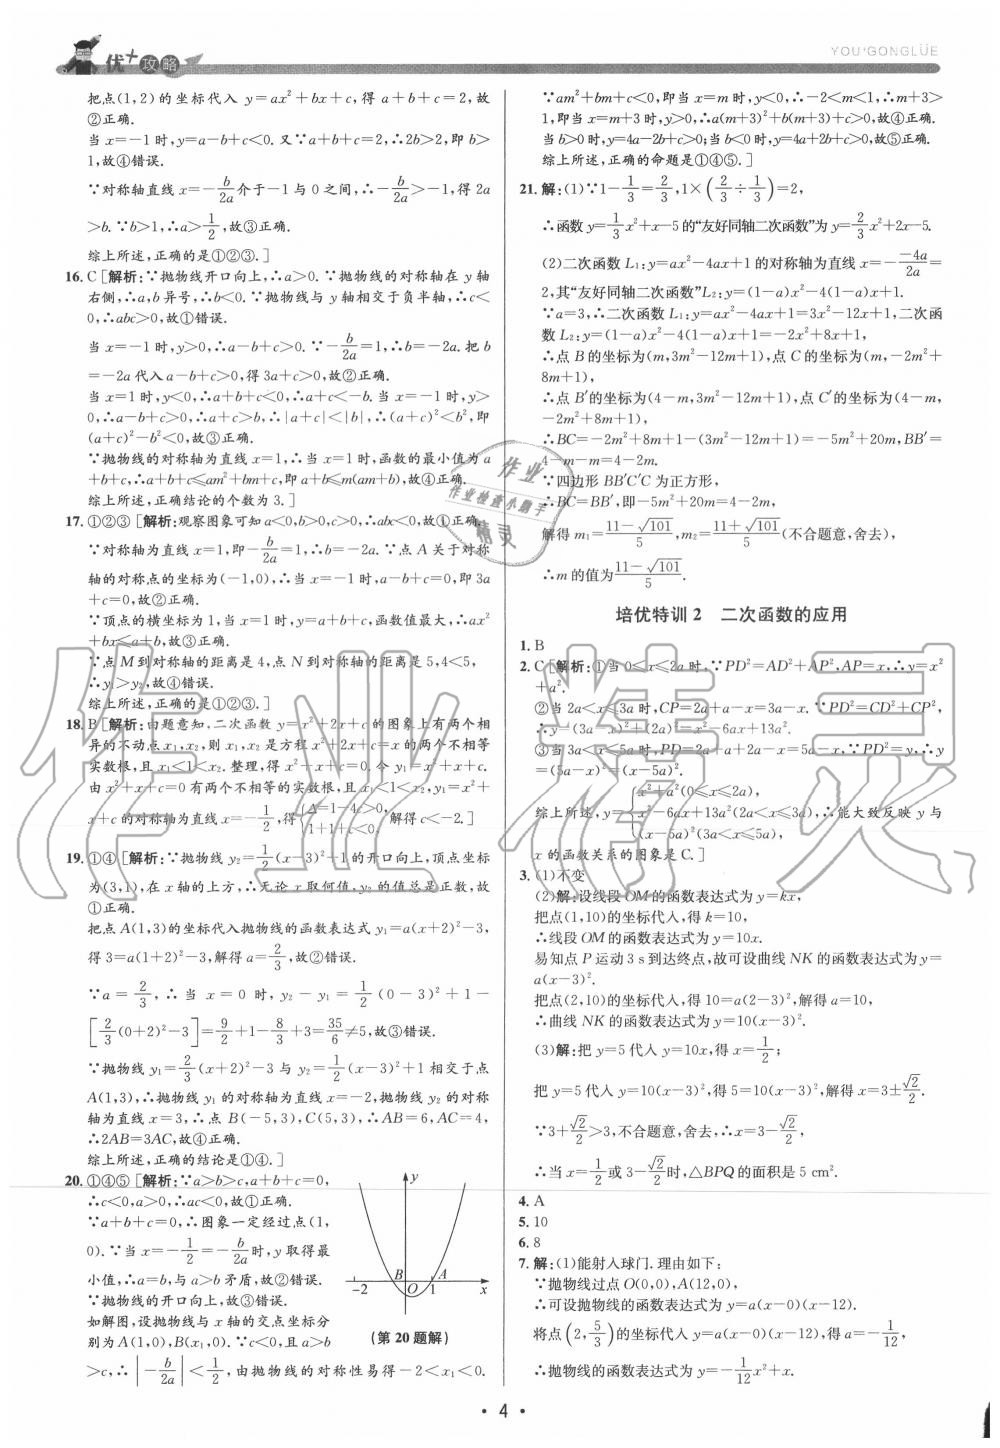 优+攻略
YOU+GONGLÜE
把点(1,2)的坐标代入 y=ax²+bx+c,得 a+b+c=2,故
②正确.
当 x=-1 时,y=a-b+c<0. 又∵a+b+c=2,∴2b>2,即 b>
1,故④错误.
∵对称轴直线 x=-b/2a介于-1 与 0 之间,∴-b/2a>-1,得 2a
>b. ∵b>1,∴a>1/2,故③正确.
综上所述,正确的是①②③.]
16. C [解析:∵抛物线开口向上,∴a>0. ∵抛物线的对称轴在 y 轴
右侧,∴a,b 异号,∴b<0. ∵抛物线与 y 轴相交于负半轴,∴c<
0,∴abc>0,故①错误.
当 x=-1 时,y>0,∴a-b+c>0. ∵-b/2a=1,∴b=-2a. 把 b
=-2a 代入 a-b+c>0,得 3a+c>0,故②正确.
当 x=1 时,y<0,∴a+b+c<0,∴a+c<-b. 当 x=-1 时,y>
0,∴a-b+c>0,∴a+c>b,∴|a+c|<|b|,∴(a+c)²<b²,即
(a+c)²-b²<0,故③正确.
∵抛物线的对称轴为直线 x=1,∴当 x=1 时,函数的最小值为 a
+b+c,∴a+b+c≤am²+bm+c,即 a+b≤m(am+b),故④正确.
综上所述,正确结论的个数为 3.]
17. ①②③ [解析:观察图象可知 a<0,b>0,c>0,∴abc<0,故①正确.
∵对称轴为直线 x=1,即-b/2a=1,∴b=-2a. ∵点 A 关于对称
轴的对称点的坐标为(-1,0),∴当 x=-1 时,a-b+c=0,即 3a
+c=0,故②正确.
∵顶点的横坐标为 1,当 x=1 时,y=a+b+c,函数值最大,∴ax²
+bx≤a+b,故③正确.
∵点 M 到对称轴的距离是 4,点 N 到对称轴的距离是 5,4<5,
∴y₁>y₂,故④错误.
综上所述,正确的是①②③.]
18. B [解析:由题意知,二次函数 y=x²+2x+c 的图象上有两个相
异的不动点 x₁,x₂,则 x₁,x₂ 是方程 x²+2x+c=x 的两个不相等
实数根,且 x₁<1<x₂. 整理,得 x²+x+c=0. 令 y₁=x²+x+c.
由 x²+x+c=0 有两个不相等的实数根,且 x₁<1<x₂,y₁=x²+
x+c 的对称轴为直线 x=-1/2,得{Δ=1-4c>0, 1+1+c<0, 解得 c<-2.]
19. ①④ [解析:∵抛物线 y₂=1/2(x-3)²+1 的开口向上,顶点坐标
为(3,1),在 x 轴的上方,∴无论 x 取何值,y₂ 的值总是正数,故
①正确.
把点 A(1,3)的坐标代入抛物线的函数表达式 y₁=a(x+2)²-3,
得 3=a(1+2)²-3,解得 a=2/3,故②错误.
∵a=2/3,∴当 x=0 时,y₂-y₁=1/2(0-3)²+1-
[2/3(0+2)²-3]=9/2+1-8/3+3=35/6≠5,故③错误.
∵抛物线 y₁=2/3(x+2)²-3 与 y₂=1/2(x-3)²+1 相交于点
A(1,3),∴抛物线 y₁ 的对称轴为直线 x=-2,抛物线 y₂ 的对称
轴为直线 x=3,∴点 B(-5,3),C(5,3),∴AB=6,AC=4,
∴2AB=3AC,故④正确.
综上所述,正确的结论是①④.]
20. ①④⑤ [解析:∵a>b>c,a+b+c=0,
∴c<0,a>0,∴ac<0,故①正确.
∵a+b+c=0,∴图象一定经过点(1,
0). ∵当 x=-1/2=-b/2a时,y 取得最
小值,∴a=b,与 a>b 矛盾,故②错误.
∵抛物线的开口向上,故③错误.
如解图,设抛物线与 x 轴的交点坐标分
别为 A(1,0),B(x₁,0). ∵c<0,且 a>b
>c,∴|-b/2a|<1/2,由抛物线的对称性易得-2<x₁<0.
y
B
A
-2
O
1
x
(第 20 题解)
∵am²+bm+c<0,即当 x=m 时,y<0,∴-2<m<1,∴m+3>
1,即当 x=m+3 时,y>0,∴a(m+3)²+b(m+3)+c>0,故④正确.
当 b>0 时,y=4a-2b+c>0;当 b<0 时,y=4a+2b+c>0,故⑤正确.
综上所述,正确的命题是①④⑤.]
21. 解:(1)∵1-1/3=2/3,1×(2/3÷1/3)=2,
∴函数 y=1/3x²+x-5 的“友好同轴二次函数”为 y=2/3x²+2x-5.
(2)二次函数 L₁:y=ax²-4ax+1 的对称轴为直线 x=--4a/2a=
2,其“友好同轴二次函数”L₂:y=(1-a)x²-4(1-a)x+1.
∵a=3,∴二次函数 L₁:y=ax²-4ax+1=3x²-12x+1,二次函
数 L₂:y=(1-a)x²-4(1-a)x+1=-2x²+8x+1,
∴点 B 的坐标为(m,3m²-12m+1),点 C 的坐标为(m,-2m²+
8m+1),
∴点 B′的坐标为(4-m,3m²-12m+1),点 C′的坐标为(4-m,
-2m²+8m+1),
∴BC=-2m²+8m+1-(3m²-12m+1)=-5m²+20m,BB′=
4-m-m=4-2m.
∵四边形 BB′C′C 为正方形,
∴BC=BB′,即-5m²+20m=4-2m,
解得 m₁=11-√101/5,m₂=11+√101/5(不合题意,舍去),
∴m 的值为11-√101/5.
培优特训 2 二次函数的应用
1. B
2. C [解析:①当 0≤x≤2a 时,∵PD²=AD²+AP²,AP=x,∴y=x²
+a².
②当 2a<x≤3a 时,CP=2a+a-x=3a-x. ∵PD²=CD²+CP²,
∴y=(3a-x)²+(2a)²=x²-6ax+13a².
③当 3a<x≤5a 时,PD=2a+a+2a-x=5a-x,∵PD²=y,∴y
=(5a-x)²=(x-5a)².
综上所述,y={x²+a²(0≤x≤2a), x²-6ax+13a²(2a<x≤3a), (x-5a)²(3a<x≤5a), ∴能大致反映 y 与
x 的函数关系的图象是 C.]
3. (1)不变
(2)解:设线段 OM 的函数表达式为 y=kx,
把点(1,10)的坐标代入,得 k=10,
∴线段 OM 的函数表达式为 y=10x.
易知点 P 运动 3 s 到达终点,故可设曲线 NK 的函数表达式为 y=
a(x-3)².
把点(2,10)的坐标代入,得 10=a(2-3)²,解得 a=10,
∴曲线 NK 的函数表达式为 y=10(x-3)².
(3)解:把 y=5 代入 y=10x,得 x=1/2;
把 y=5 代入 y=10(x-3)²,得 5=10(x-3)²,解得 x=3±√2/2.
∵3+√2/2>3,不合题意,舍去,∴x=3-√2/2,
∴当 x=1/2或 3-√2/2时,△BPQ 的面积是 5 cm².
4. A
5. 10
6. 8
7. 解:(1)能射入球门. 理由如下:
∵抛物线过点 O(0,0),A(12,0),
∴可设抛物线的函数表达式为 y=a(x-0)(x-12).
将点(2,5/3)的坐标代入 y=a(x-0)(x-12),得 a=-1/12,
∴抛物线的函数表达式为 y=-1/12x²+x.
· 4 ·
作业
作业检查小助手
精灵
作业精灵